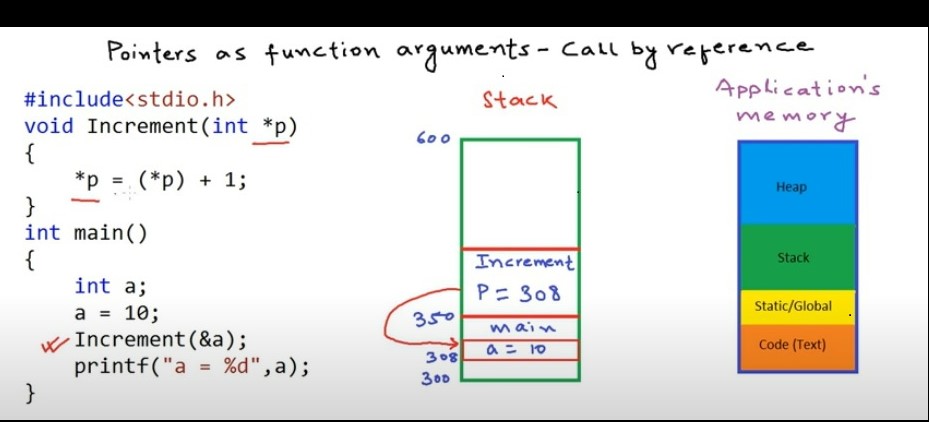 Pointers as function arguments - Call by reference
#include<stdio.h>
void Increment(int *p)
{
*p = (*p) + 1;
}
int main()
{
int a;
a = 10;
Increment(&a);
printf("a = %d",a);
}
Stack
600
Increment
P = 308
350
main
a = 10
308
300
Application's
memory
Heap
Stack
Static/Global
Code (Text)